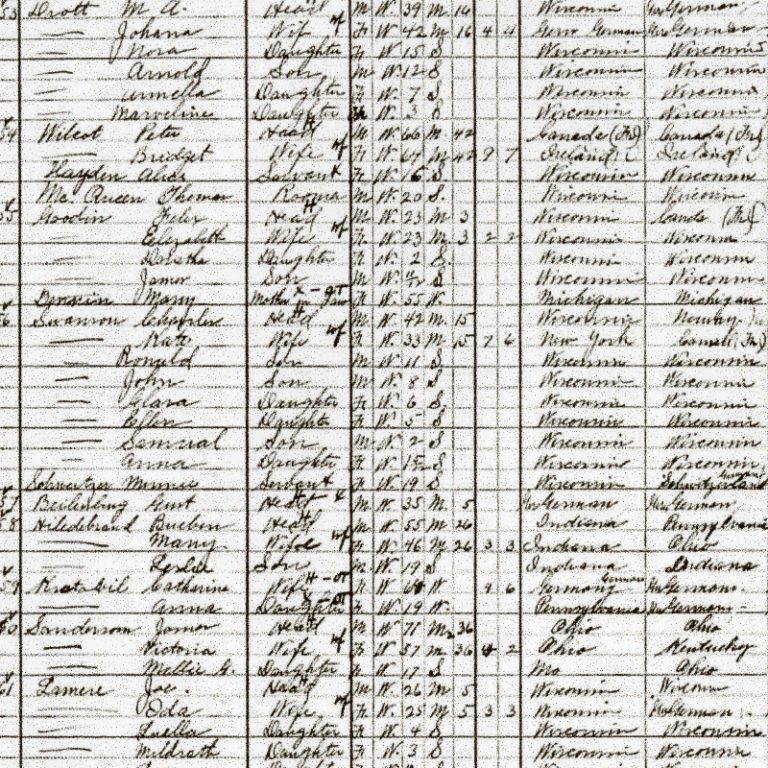 53 Drott M. A. Head M W 39 M 16 Wisconsin Ger German
— Johana Wife F W 42 M 16 4 4 Ger German Ger German
— Nora Daughter F W 15 S Wisconsin Wisconsin
— Arnold Son M W 12 S Wisconsin Wisconsin
— Daughter F W 7 S Wisconsin Wisconsin
— Marveline Daughter F W 3 S Wisconsin Wisconsin
54 Wilcot Peter Head M W 66 M 42 Canada (Fr) Canada (Fr)
— Bridget Wife F W 67 M 42 9 7 Ireland Ireland
Hayden Alice Servant F W 16 S Wisconsin Wisconsin
Mc Queen Thomas Roomer M W 20 S Wisconsin Wisconsin
55 Goodin Felix Head M W 23 M 3 Wisconsin Canada (Fr)
— Elizabeth Wife F W 23 M 3 2 2 Wisconsin Wisconsin
— Daughter F W 2 S Wisconsin Wisconsin
— James Son M W S Wisconsin Wisconsin
Mary Mother in Law F W 55 W Michigan Michigan
56 Swanson Charles Head M W 42 M 15 Wisconsin Norway
— Kate Wife F W 33 M 15 7 6 New York Canada (Fr)
— Ronald Son M W 11 S Wisconsin Wisconsin
— John Son M W 8 S Wisconsin Wisconsin
— Clara Daughter F W 6 S Wisconsin Wisconsin
— Ellen Daughter F W 5 S Wisconsin Wisconsin
— Samual Son M W 2 S Wisconsin Wisconsin
— Anna Daughter F W S Wisconsin Wisconsin
Schweitzer Minnie Servant F W 19 S Wisconsin Switzerland German
57 Head M W 35 M 5 Ger German Ger German
58 Hildebrand Rueben Head M W 55 M 26 Indiana Pennsylvania
— Mary Wife F W 46 M 26 3 3 Indiana Ohio
— Leslie Son M W 19 S Indiana Indiana
59 Catharine Wife F W W 9 6 Germany German Ger German
— Anna Daughter F W 19 W Pennsylvania Ger German
60 Sanderson James Head M W 71 M 36 Ohio Ohio
— Victoria Wife F W 57 M 36 4 2 Ohio Kentucky
— Mellie G. Daughter F W 17 S Mo Ohio
61 Lamere Joe Head M W 26 M 5 Wisconsin Wisconsin
— Ida Wife F W 25 M 5 3 3 Wisconsin Ger German
— Luella Daughter F W 4 S Wisconsin Wisconsin
— Mildreth Daughter F W 3 S Wisconsin Wisconsin